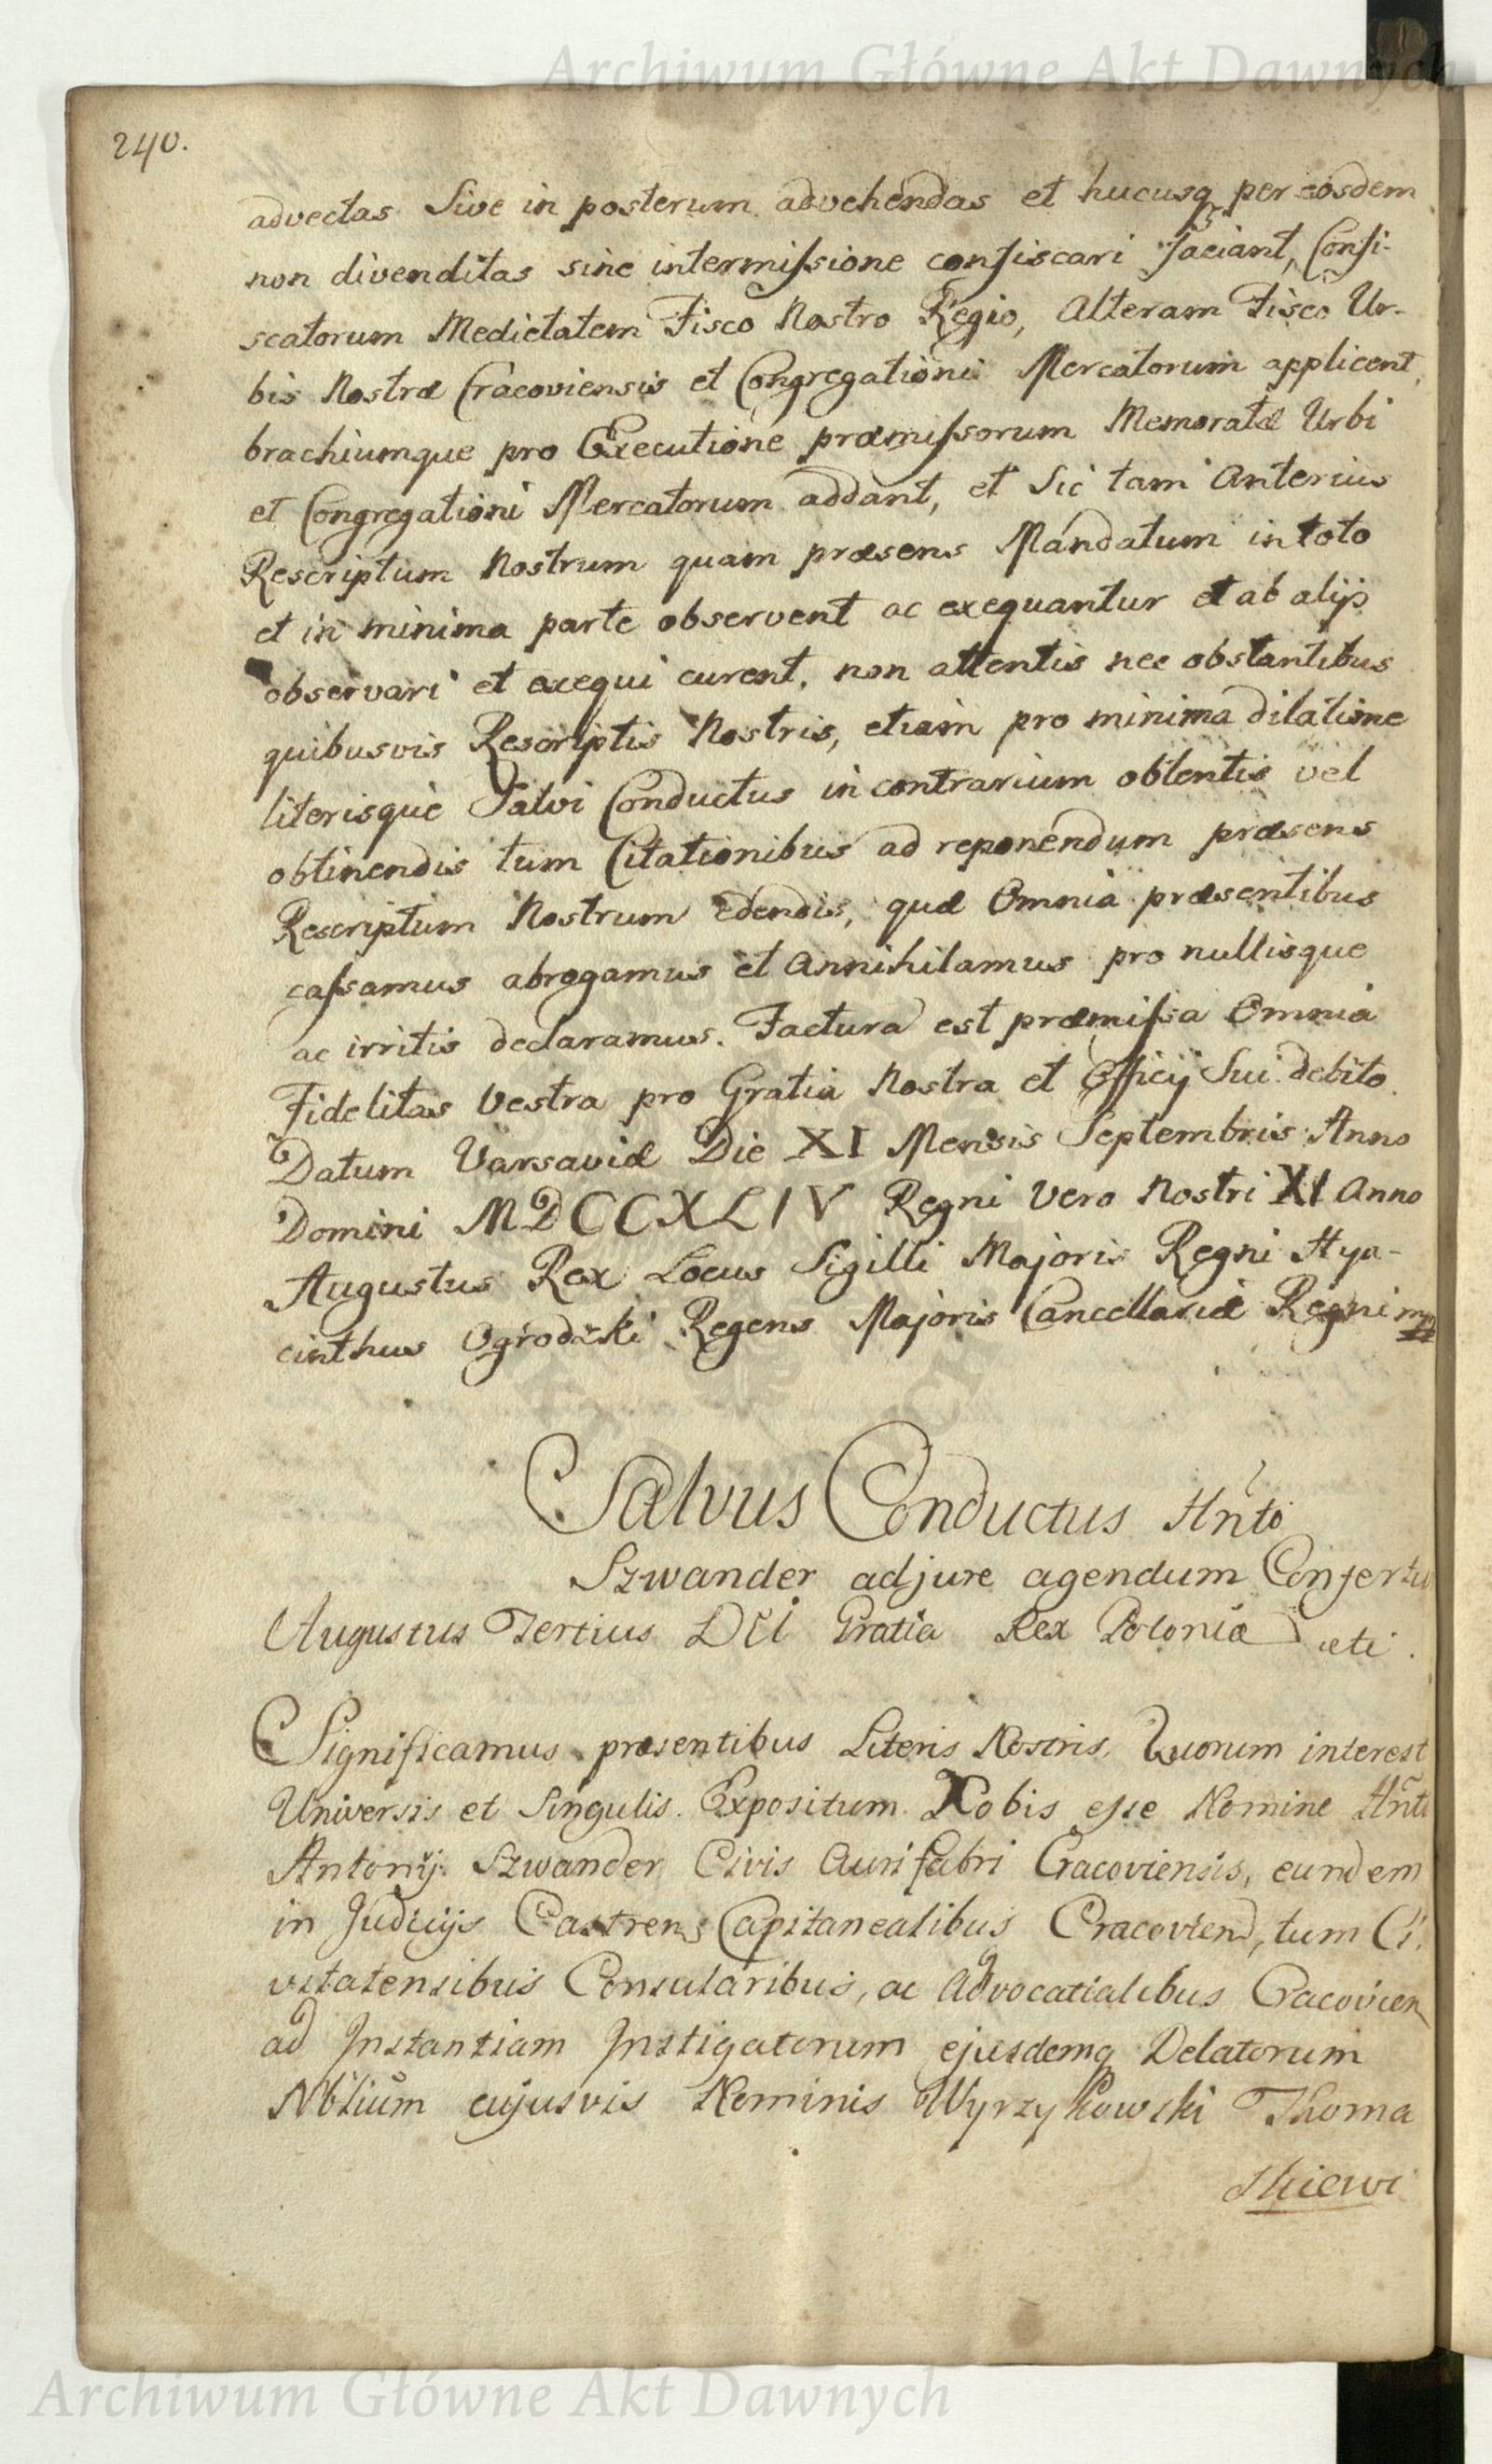 Archiwum Główne Akt Dawnych
240.
advectas Sive in posterum advehendas et hucusq per eosdem
non divenditas sine intermissione confiscari faciant, Confi-
scatorum Medietatem Fisco Nostro Regio, Alteram Fisco Ur-
bis Nostræ Cracoviensis et Congregationi Mercatorum applicent,
brachiumque pro Executione præmissorum Memoratæ Urbi
et Congregationi Mercatorum addant, et Sic tam Anterius
Rescriptum Nostrum quam præsens Mandatum in toto
et in minima parte observent ac exequantur et ab alijs
observari et exequi curent, non attentis nec obstantibus
quibusvis Rescriptis Nostris, etiam pro minima dilatione
literisque Salvi Conductus in contrarium obtentis vel
obtinendis tum Citationibus ad reponendum præsens
Rescriptum Nostrum edendis, quæ Omnia præsentibus
cassamus abrogamus et Annihilamus pro nullisque
ac irritis declaramus. Factura est præmissa Omnia
Fidelitas Vestra pro Gratia Nostra et Officij Sui debito.
Datum Varsaviæ Die XI Mensis Septembris Anno
Domini MDCCXLIV Regni Vero Nostri XI Anno
Augustus Rex Locus Sigilli Majoris Regni Hya-
cinthus Ogrodzki Regens Majoris Cancellariæ Regni mp
Salvus Conductus Hnto
Szwander adjure agendum Confertur
Augustus Tertius DEI Gratia Rex Poloniæ etc.
Significamus præsentibus Literis Nostris, Quorum interest
Universis et Singulis. Expositum Nobis esse Nomine Hnti
Antonij Szwander Civis Aurifabri Cracoviensis, eundem
in Judicijs Castrens Capitanealibus Cracovien, tum Ci-
vitatensibus Consularibus, ac Advocatialibus Cracovien
ad Instantiam Instigatorum ejusdemq Delatorum
Nblium cujusvis Nominis Wyrzykowski Thoma
Skiewi
Archiwum Główne Akt Dawnych